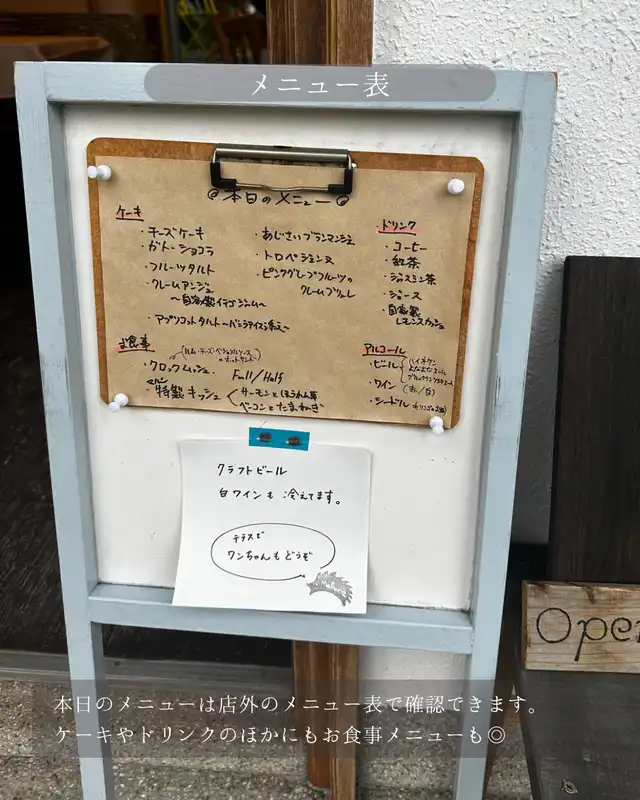 メニュー表
本日のメニュー
ケーキ
・チーズケーキ
・ガトーショコラ
・フルーツタルト
・クレームアンジュ
〜自家製イチゴジャム〜
・アプリコットタルト〜バニラアイス添え〜
・あじさいブランマンジェ
・トロペジェンヌ
・ピンクグレープフルーツの
クレームブリュレ
ドリンク
・コーヒー
・紅茶
・ジャスミン茶
・ジュース
・自家製
レモンスカッシュ
お食事
(ハム・チーズ・ベシャメルソース
のホットサンド)
・クロックムッシュ・ Full/Half
・特製キッシュ
サーモンとほうれん草
ベーコンとたまねぎ
アルコール
・ビール
ハイネケン
よなよなエール
・ワイン (赤/白)
・シードル
クラフトビール
白ワインも 冷えてます。
テラスで
ワンちゃんもどうぞ
Open
本日のメニューは店外のメニュー表で確認できます。
ケーキやドリンクのほかにもお食事メニューも◎